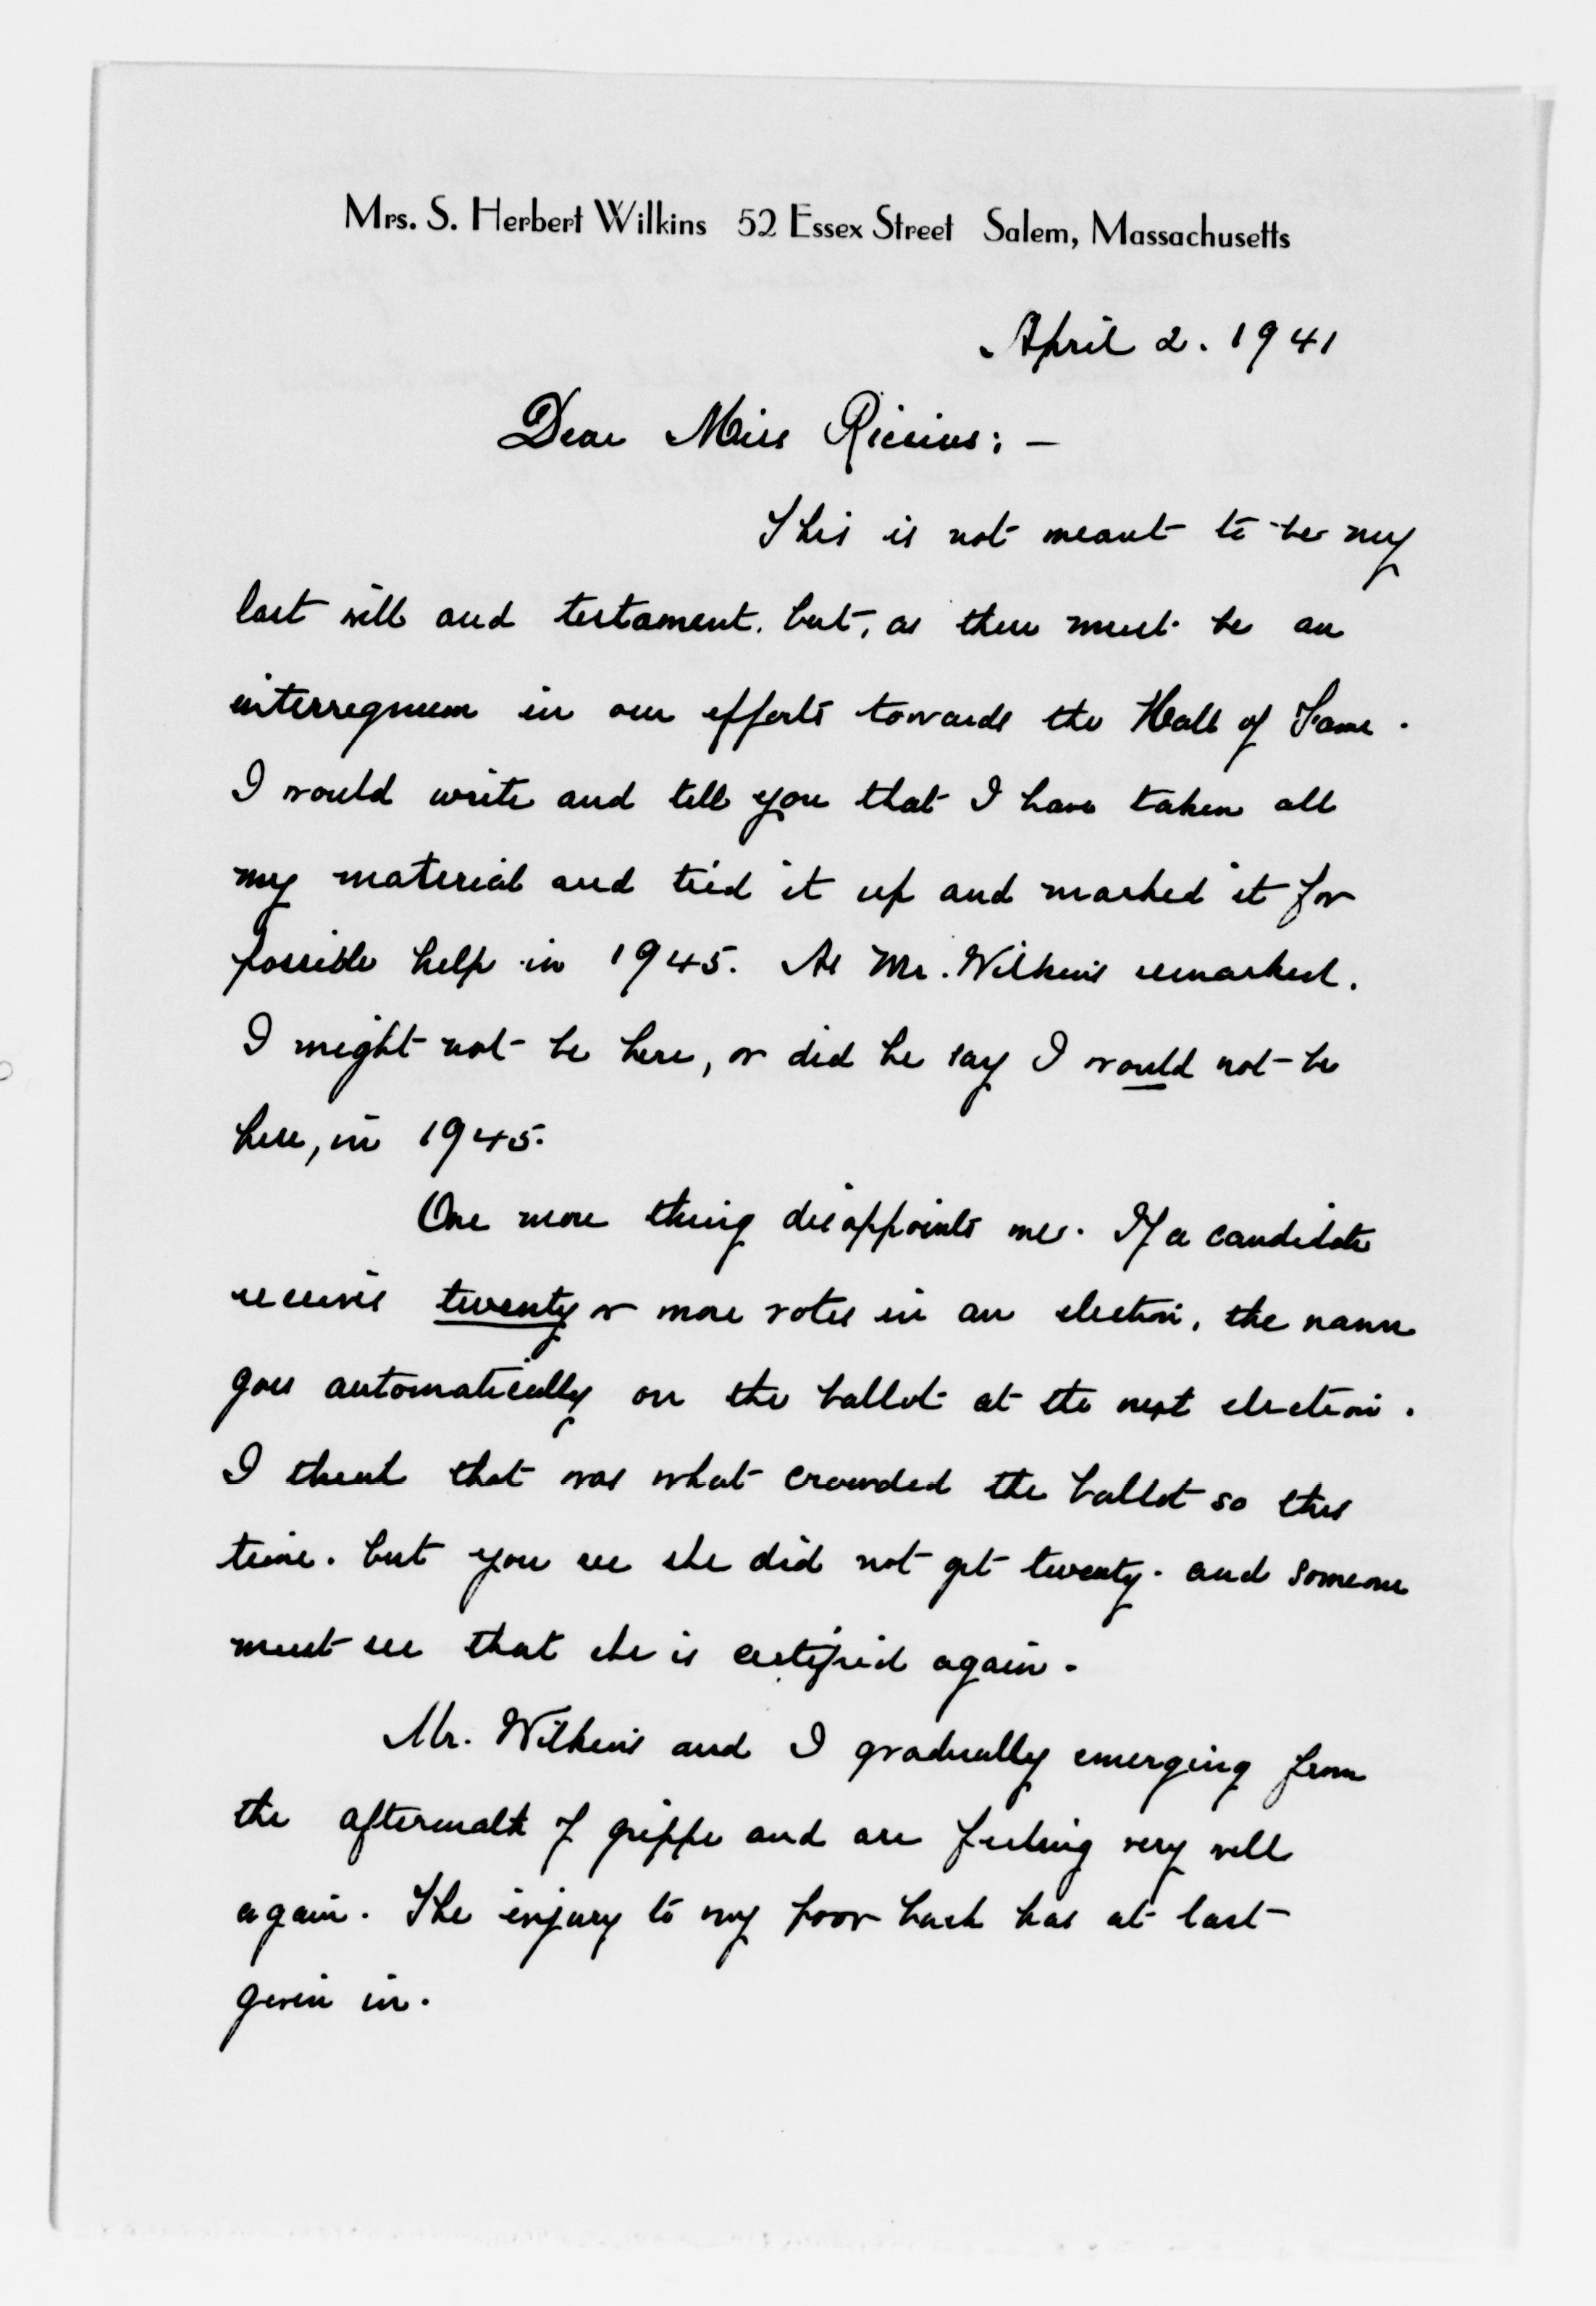 Mrs. S. Herbert Wilkins 52 Essex Street Salem, Massachusetts
April 2. 1941
Dear Miss Riccius: —
This is not meant to be my
last will and testament. but, as there must be an
interregnum in our efforts towards the Hall of Fame.
I would write and tell you that I have taken all
my material and tied it up and marked it for
possible help in 1945. As Mr. Wilkins remarked.
I might not be here, or did he say I would not be
here, in 1945.
One more thing disappoints me. If a candidate
receives twenty or more votes in an election, the name
goes automatically on the ballot at the next election.
I think that was what crowded the ballot so this
time. but you see she did not get twenty. and someone
must see that she is certified again.
Mr. Wilkins and I gradually emerging from
the aftermath of grippe and are feeling very well
again. The injury to my poor back has at last
given in.